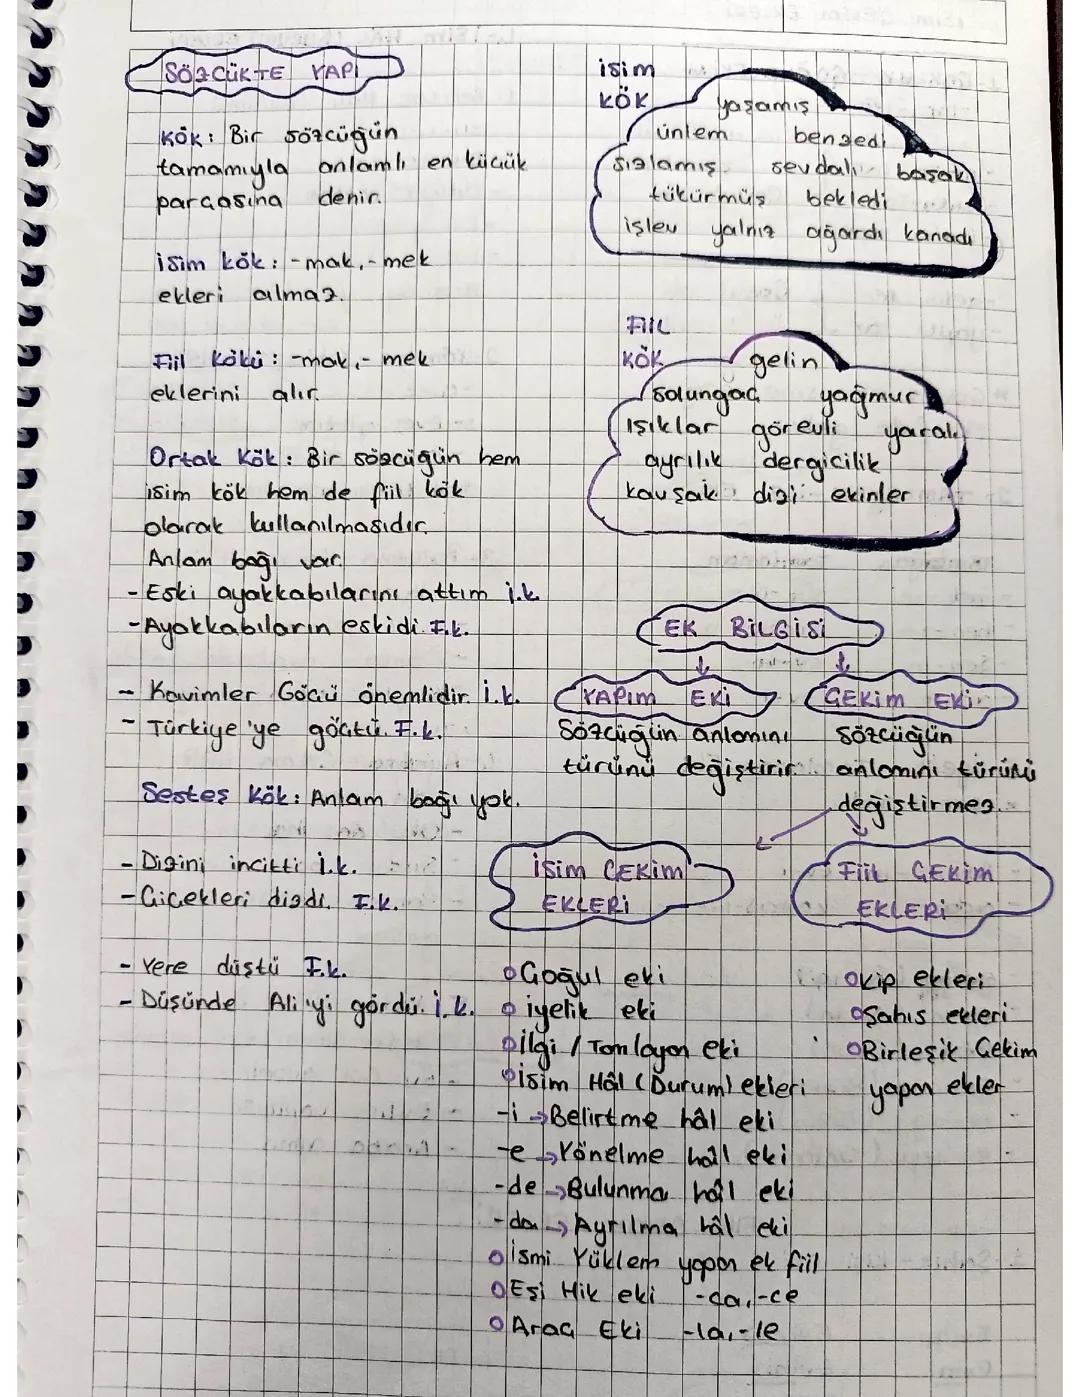 SÖZCÜKTE YAPI
KÖK: Bir sözcüğün
tamamıyla anlamlı en küçük
parçasına denir.
isim kök: -mak,-mek
ekleri almaz.
Fiil Kökü: -mak,-mek
eklerini alır.
Ortak Kök: Bir sözcüğün hem
isim kök hem de fiil kök
olarak kullanılmasıdır.
Anlam bağı var.
- Eski ayakkabılarını attım i.k
- Ayakkabıların eskidi. F.k.
- Kavimler Göçü önemlidir. i.k.
- Türkiye'ye göçtü. F.k.
Sesteş Kök: Anlam bağı yok.
- Dizini incitti i.k.
- Çiçekleri dizdi. F.k.
- Yere düştü F.k.
- Düşünde Ali'yi gördü. i.k.
isim
KÖK
yaşamış
ünlem benzedi
sızlamış sevdalı başak
tükürmüş bekledi
işlev yalnız ağardı kanadı
FiiL
KÖK
gelin
solungaç yağmur
ışıklar görevli yaralı
ayrılık dergicilik
kavşak dizi ekinler
EK BiLGiSi
YAPIM EKi
Sözcüğün anlamını
türünü değiştirir.
ÇEKiM EKi
Sözcüğün
anlamını türünü
değiştirmez.
iSiM ÇEKiM
EKLERi
Çoğul eki
iyelik eki
ilgi / Tamlayan eki
isim Hâl (Durum) ekleri
-i → Belirtme hâl eki
-e → Yönelme hâl eki
-de → Bulunma hâl eki
-da → Ayrılma hâl eki
ismi Yüklem yapan ek fiil
Eşi Hik eki -ca,-ce
Araç Eki -la,-le
FiiL ÇEKiM
EKLERi
Kip ekleri
Şahıs ekleri
Birleşik Çekim
yapan ekler